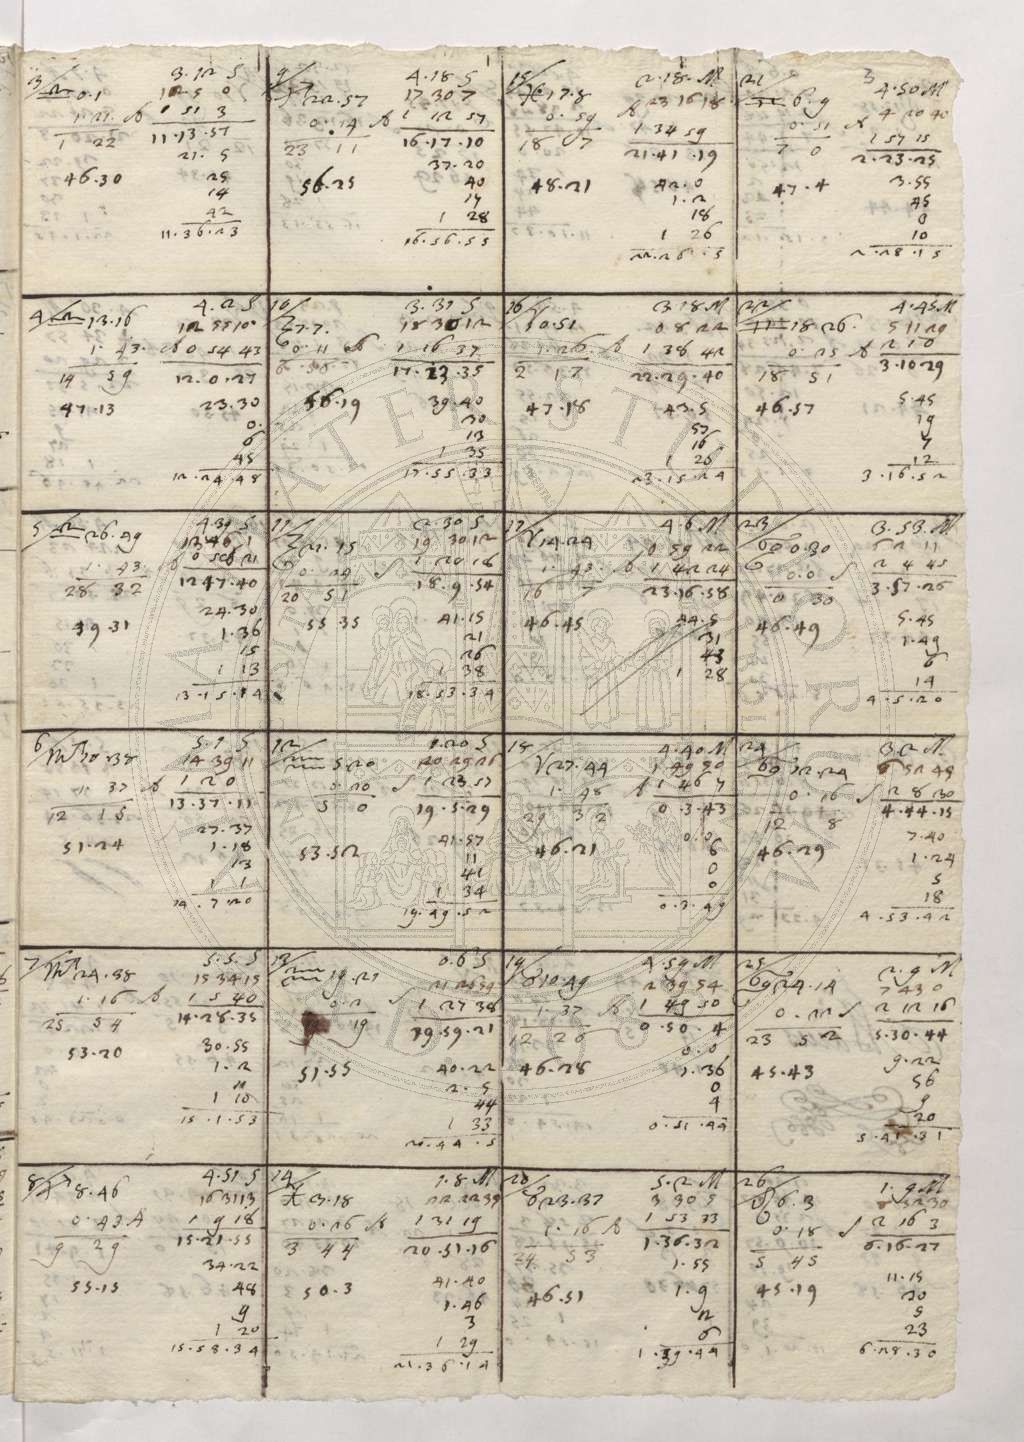 3
3.12 S
♎ 0.1
12 5 0
1. 21. A
0 51 3
1 22
11.13.57
21. 5
46.30
25
14
42
11.36.23
9
4.18 S
♐ 22.57
17 30 7
0. 14 A
1 12 57
23 11
16.17.10
37.20
56.25
40
17
1 28
16.56.55
15
2.18. M
♓ 17.8
23 16 18
0. 59 A
1 34 59
18 7
21.41.19
42.0
48.21
1.2
18
1 26
22.26.5
21
3
4.50 M
6.9
4 20 40
0.51
1 57 15
7 0
2.23.25
3.55
47.4
45
0
10
2.28.15
4
4.2 S
♎ 13.16
12 55 10
1. 43. A
0 54 43
14 59
12.0.27
47.13
23.30
0.
6
45
12.24.48
10
3.31 S
7.7.
18 30 12
0.11 A
1 16 37
17.23.35
56.19
39.40
30
13
1 35
17.55.33
16
3.18 M
0.51
0 8 22
1.26. A
1 38 42
2 17
22.29.40
47.18
43.5
57
16
1 26
23.15.24
22
4.45 M
18 26.
5 11 29
0. 25 A
2 1 0
18. 51
3.10 29
46.57
5.45
19
7
12
3.16.52
5
4.39 S
♎ 26.49
13 46 1
1. 43.
28 32
12 47.40
24.30
49.31
1.36
15
1 13
13.15.14
11
2.30 S
21.15
19 30 12
0. 29
1 20 18
20 51
18.9.54
55.35
41.15
21
26
1 38
18.53.34
17
4.6 M
♈ 14.24
0 59 22
1. 43. A
1 42 24
16 7
23.16.58
46.45
44.5
31
43
1 28
23
3.53 M
0.30
6 2 11
0.0
2 4 45
0 30
3.57.26
46.49
5.45
1.49
6
14
4.5.20
6
5.1 S
♏ 10.38
14 39 11
1. 37 A
1 2 0
12 15
13.37.11
27.37
51.24
1.18
13
1 1
14.7.20
12
1.20 S
♒ 5.20
20 29 26
0.20
1 23 57
5 0
19.5.29
53.52
41.57
11
41
1 34
19.49.52
18
4.40 M
♈ 27.44
1 49 50
1. 48
1 46 7
29 32
0.3.43
46.21
0.0
6
0
0
0.3.49
24
3.2 M
12.24
6 52 45
0. 16
2 8 30
12 8
4.44.15
46.29
7.40
1.24
5
18
4.53.42
7
5.5. S
♏ 24.38
15 34 15
1. 16 A
1 5 40
25. 54
14.28.35
53.20
30.55
1.2
11
1 10
15.1.53
13
0.6 S
♒ 19.21
0.2
1 27 38
19
19.59.21
51.55
40.22
2.5
44
1 33
20.44.5
19
4.59 M
♉ 10.49
2 39 54
1. 37
1 49 50
12 26
0.50.4
46.28
0.0
1.36
0
4
0.51.44
25
2.9 M
24.14
7 43 0
0. 22
2 12 16
23 52
5.30.44
45.43
9.22
56
9
20
5.41.31
8
4.51 S
♐ 8.46
16 31 13
0.43 A
1 9 18
9 29
15.21.55
34.22
55.15
48
9
1 20
15.58.34
14
1.8 M
♓ 3.18
22 22 35
0.26 A
1 31 19
3 44
20.51.16
50.3
41.40
1.46
3
1 29
21.36.14
20
5.2 M
♉ 23.37
3 30 5
1. 16 A
1 53 33
24 53
1.36.32
1.55
46.51
1.9
2
6
1.39.44
26
1.9 M
6.3
0.18
2 16 3
5 45
6.16.27
45.19
11.15
30
5
23
6.28.30
MATER STUDIORUM